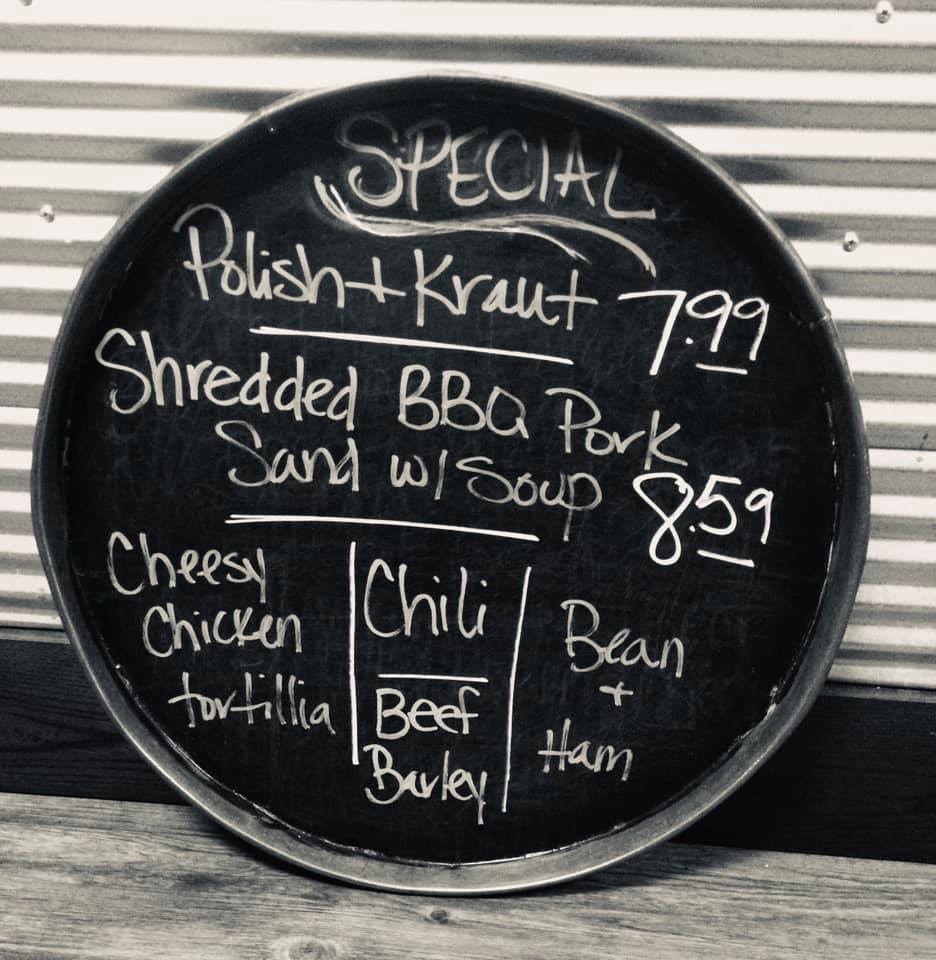 SPECIAL
Polish + Kraut 7.99
Shredded BBQ Pork
Sand w/ Soup 8.59
Cheesy
Chicken
tortillia
Chili
Beef
Barley
Bean
+
Ham